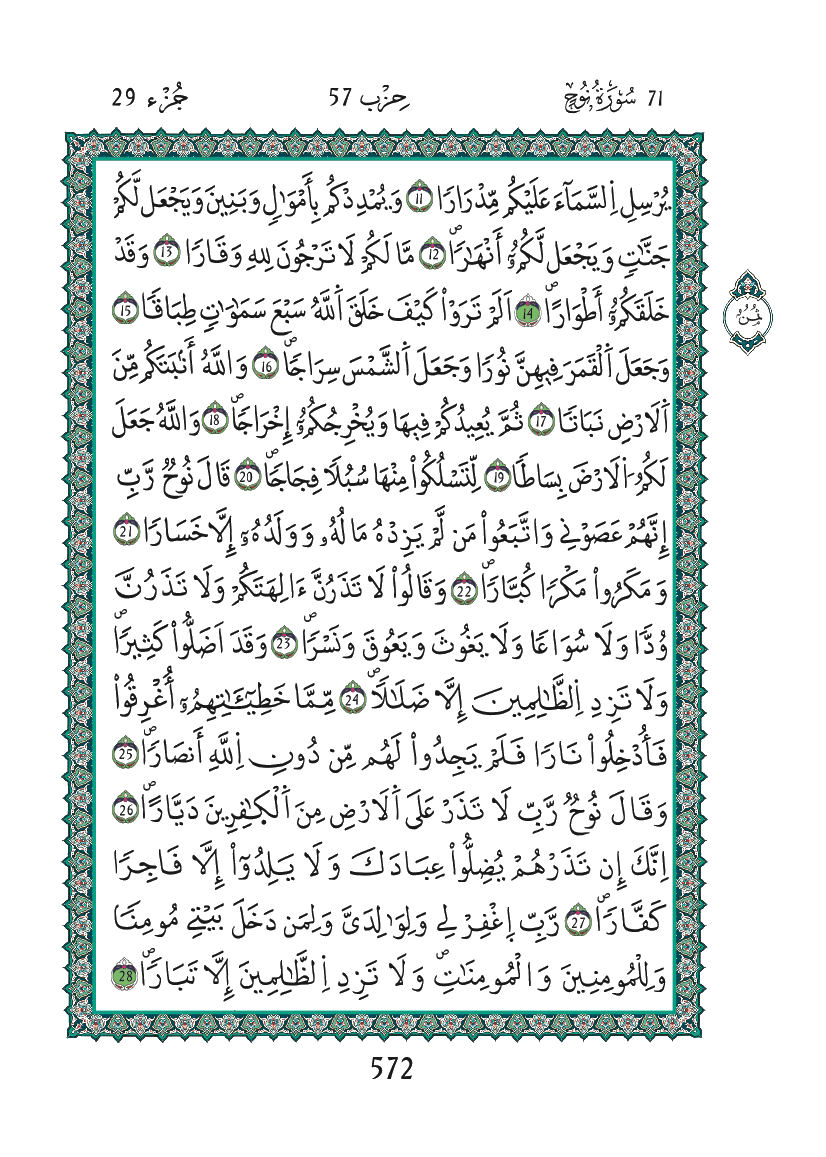 71 سُورَةُ نُوحٍ حِزْب 57 جُزْء 29
يُرْسِلِ اِ۬لسَّمَآءَ عَلَيْكُم مِّدْرَارٗا 11 وَيُمْدِدْكُم بِأَمْوَٰلٖ وَبَنِينَ وَيَجْعَل لَّكُمْ
جَنَّٰتٖ وَيَجْعَل لَّكُمُۥٓ أَنْهَٰرٗاۖ 12 مَّا لَكُمْ لَا تَرْجُونَ لِلهِ وَقَارٗا 13 وَقَدْ
خَلَقَكُمُۥٓ أَطْوَارًاۖ 14 اَلَمْ تَرَوْاْ كَيْفَ خَلَقَ اَ۬للَّهُ سَبْعَ سَمَٰوَٰتٖ طِبَاقٗا 15
وَجَعَلَ اَ۬لْقَمَرَ فِيهِنَّ نُورٗا وَجَعَلَ اَ۬لشَّمْسَ سِرَاجٗاۖ 16 وَاللَّهُ أَنۢبَتَكُم مِّنَ
اَ۬لَارْضِ نَبَاتٗا 17 ثُمَّ يُعِيدُكُمْ فِيهَا وَيُخْرِجُكُمُۥٓ إِخْرَاجٗاۖ 18 وَاللَّهُ جَعَلَ
لَكُمُ اُ۬لَارْضَ بِسَاطٗا 19 لِّتَسْلُكُواْ مِنْهَا سُبُلٗا فِجَاجٗاۖ 20 قَالَ نُوحٞ رَّبِّ
إِنَّهُمْ عَصَوْنِے وَاتَّبَعُواْ مَن لَّمْ يَزِدْهُ مَالُهُۥ وَوَلَدُهُۥٓ إِلَّا خَسَارٗا 21
وَمَكَرُواْ مَكْرٗا كُبَّارٗاۖ 22 وَقَالُواْ لَا تَذَرُنَّ ءَالِهَتَكُمْ وَلَا تَذَرُنَّ
وُدّٗا وَلَا سُوَاعٗا وَلَا يَغُوثَ وَيَعُوقَ وَنَسْرٗاۖ 23 وَقَدَ اَضَلُّواْ كَثِيرٗاۖ
وَلَا تَزِدِ اِ۬لظَّٰلِمِينَ إِلَّا ضَلَٰلٗاۖ 24 مِّمَّا خَطِيٓـَٰٔتِهِمُۥٓ أُغْرِقُواْ
فَأُدْخِلُواْ نَارٗا فَلَمْ يَجِدُواْ لَهُم مِّن دُونِ اِ۬للَّهِ أَنصَارٗاۖ 25
وَقَالَ نُوحٞ رَّبِّ لَا تَذَرْ عَلَى اَ۬لَارْضِ مِنَ اَ۬لْكٰ۪فِرِينَ دَيَّارًاۖ 26
اِنَّكَ إِن تَذَرْهُمْ يُضِلُّواْ عِبَادَكَ وَلَا يَلِدُوٓاْ إِلَّا فَاجِرٗا
كَفَّارٗاۖ 27 رَّبِّ اِ۪غْفِرْ لِے وَلِوَٰلِدَيَّ وَلِمَن دَخَلَ بَيْتِے مُومِنٗا
وَلِلْمُومِنِينَ وَالْمُومِنَٰتِۖ وَلَا تَزِدِ اِ۬لظَّٰلِمِينَ إِلَّا تَبَارٗاۖ 28
ثُمُن
572